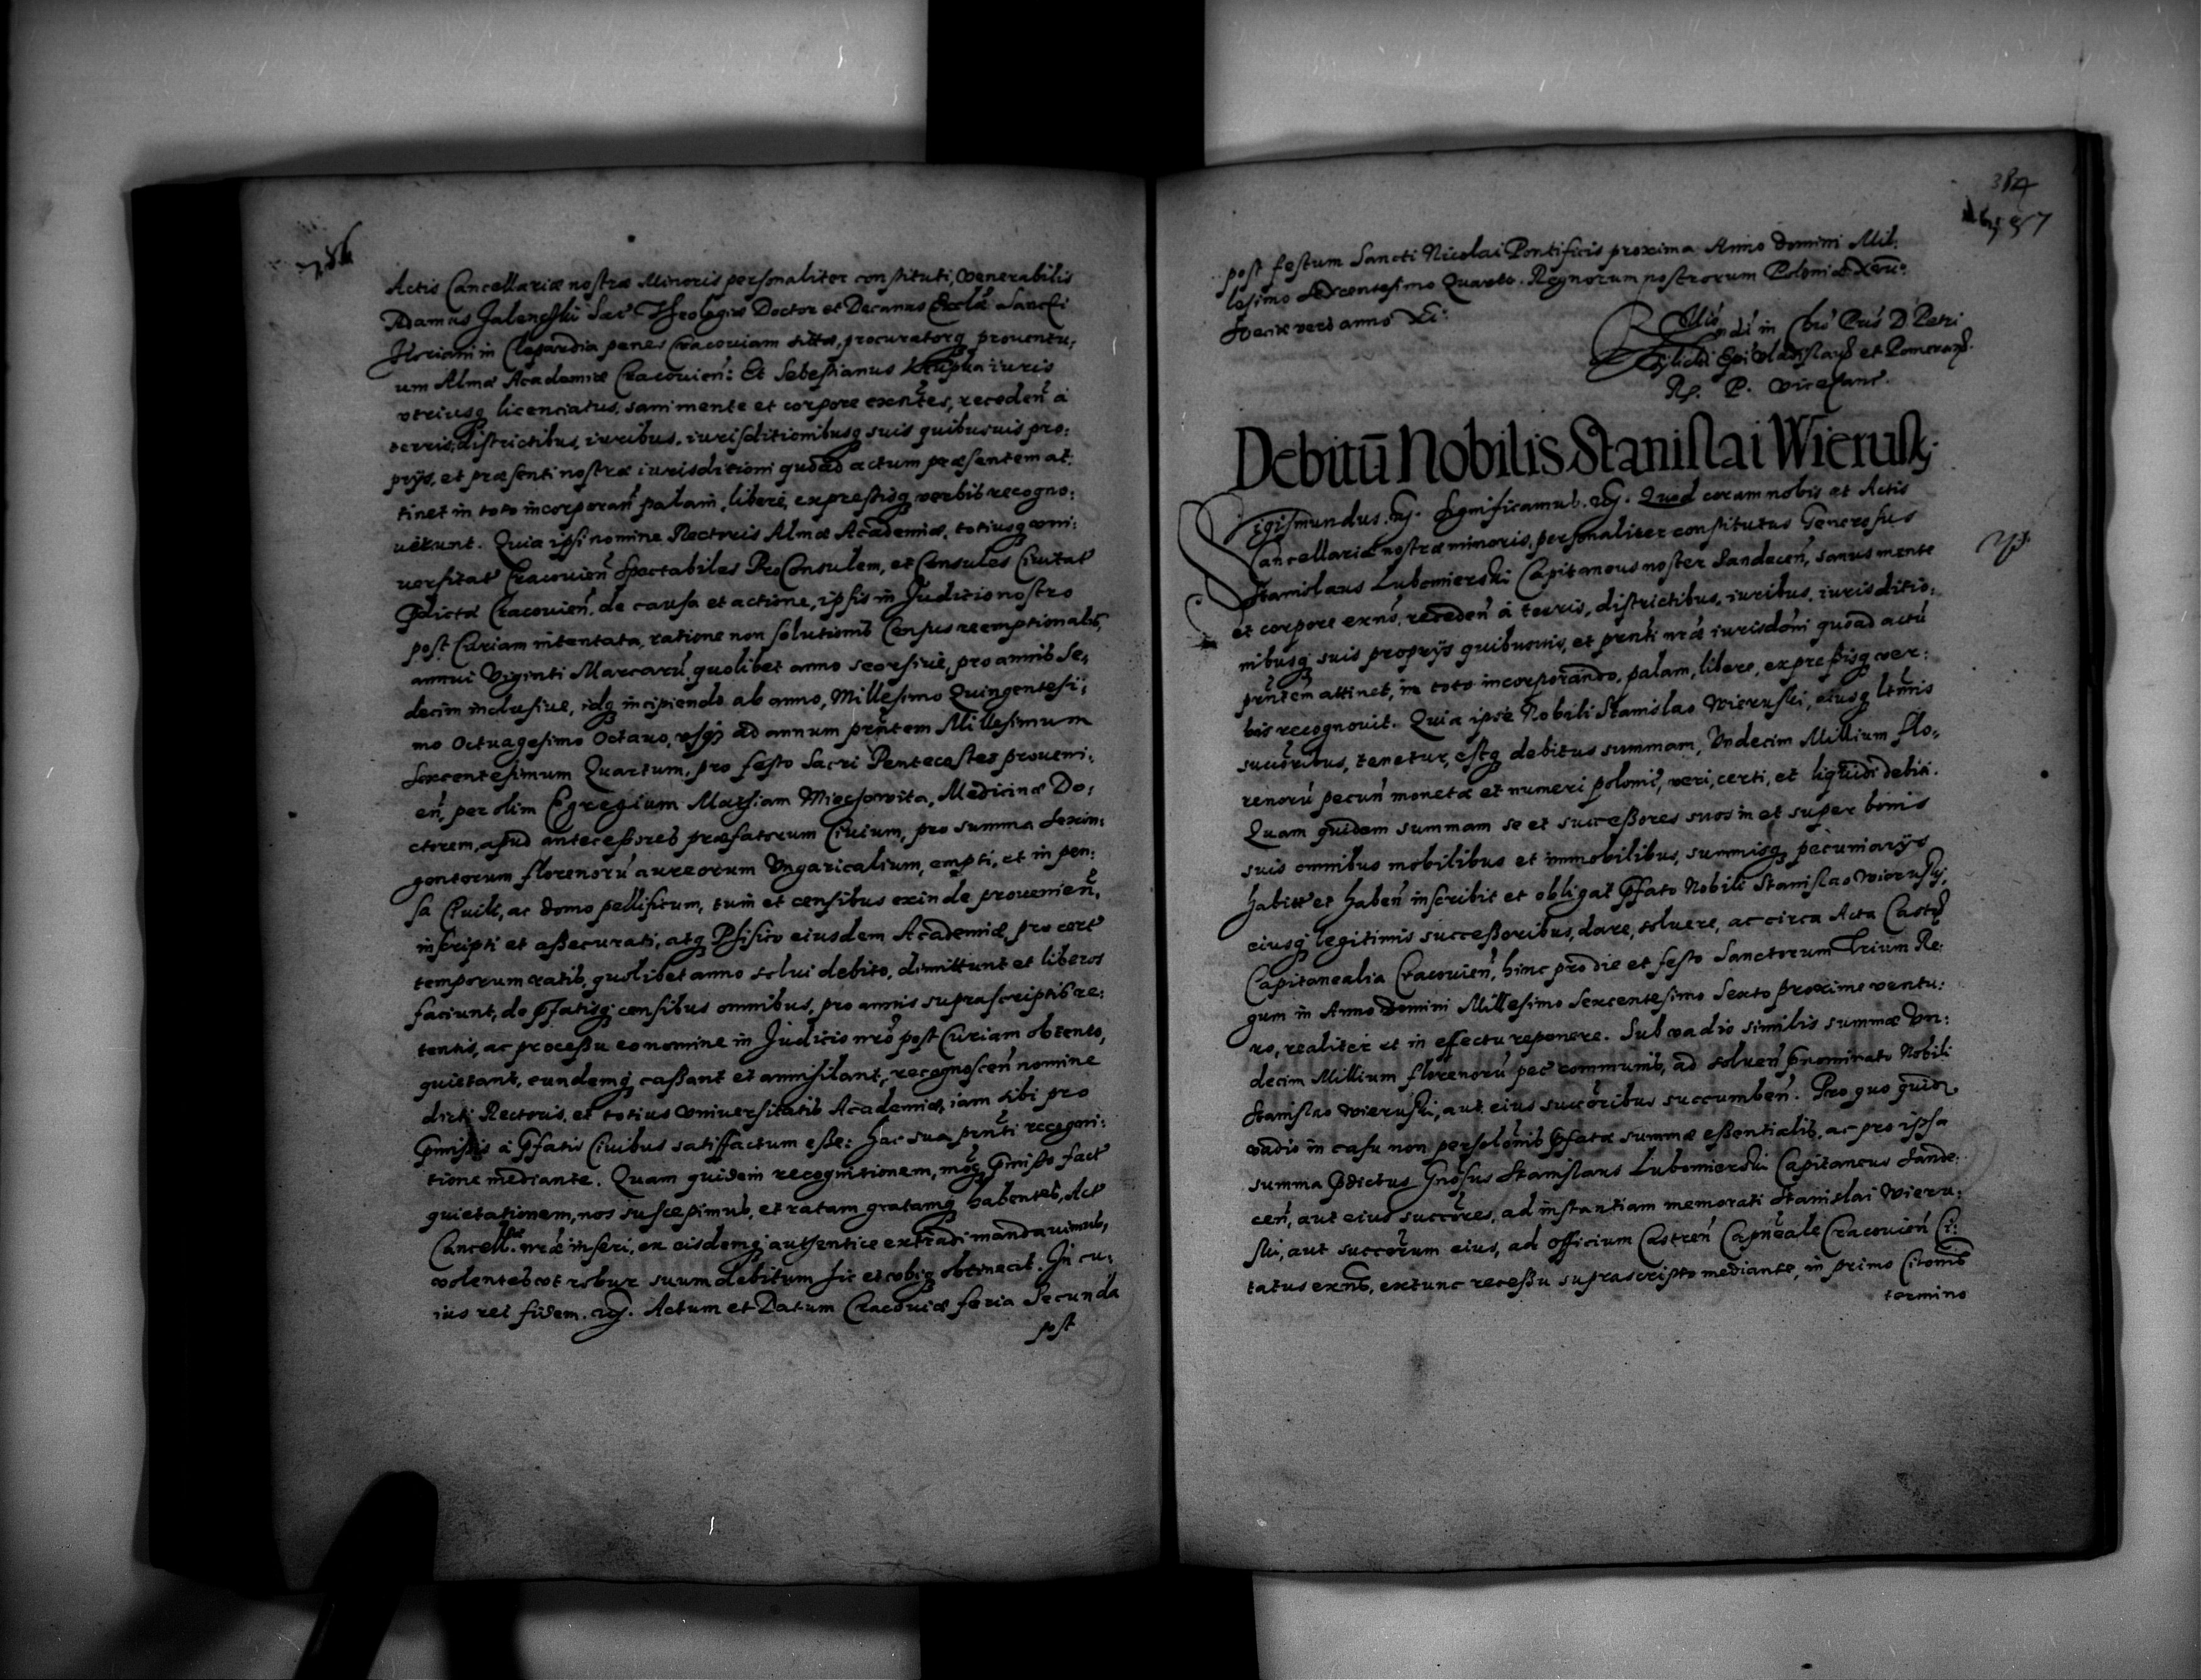 Actis Cancellariæ nostræ Minoris personaliter constituti, Venerabilis
Adamus Zalenski Sac Theologiæ Doctor et Decanus Ecclæ Sancti
Floriani in Clepardia penes Cracoviam sittæ, procuratorq prouentu,
um Almæ Academiæ Cracouien: Et Sebestianus Krupka iuris
vtriusq licenciatus, sani mente et corpore exntes, receden à
terris, districtibus, iuribus, iurisditionibusq suis quibusuis pro:
prijs, et præsenti nostræ iurisditioni quoad actum præsentem at,
tinet in toto incorporan palam, liberè, expressisq verbis recogno:
uerunt. Quia ipsi nomine Rectoris Almæ Academiæ, totiusq vni:
uersitat Cracouien Spectabiles ProConsulem, et Consules Ciuitat
pdictæ Cracouien, de causa et actione, ipsis in Juditio nostro
post Curiam intentata, ratione non solutionis Census reemptionalis,
annui Viginti Marcarū, quolibet anno seorsiuè, pro annis Se,
decim inclusiue, idq incipiendo ab anno, Millesimo Quingentesi,
mo Octuagesimo Octauo, vsq ad annum prntem Millesimum
Sexcentesimum Quartum, pro festo Sacri Pentecostes proueni:
en, per olim Egregium Mathiam Miechowita, Medicinæ Do,
ctorem, apud antecessores præfatorum Ciuium, pro summa Sexin,
gentorum florenorū aureorum Vngaricalium, empti, et in pen,
sa Ciuili, ac domo pellificum, tum et censibus exinde prouenien,
inscripti et assecurati, atq Phisico eiusdem Academiæ, pro cert
temporum ratis, quolibet anno solui debito, dimittunt et liberos
faciunt, do pfatisq censibus omnibus, pro annis suprascriptis re:
tentis, ac processu eo nomine in Juditio nro post Curiam obtento,
quietant, eundemq cassant et annihilant, recognoscen nomine
dicti Rectoris, et totius Vniuersitatis Academiæ, iam sibi pro
pmissis à pfatis Ciuibus satisfactum esse: hac sua prnti recogni:
tione mediante. Quam quidem recognitionem, moq pmisso fact
quietationem, nos suscepimus, et ratam gratamq habentes, Act
Cancell. nræ inseri, ex eisdemq authentice extradi mandauimus,
volentes vt robur suum debitum hic et vbiq obtineat. In cu,
ius rei fidem. etc. Actum et Datum Cracouiæ feria Secunda
post
384
post festum Sancti Nicolai Pontificis proxima Anno Domini Mil,
lesimo Sexcentesimo Quarto. Regnorum nostrorum Poloniæ XVII.
Sueciæ vero anno XI:
Rndi in Chro Pris D. Petri
Tylicki Epi Vladislauis et Pomeraniæ.
R. P. Vicecanc.
Debitū Nobilis Stanislai Wierusky
Sigismundus. etc. Significamus. etc. Quod coram nobis et Actis
Cancellariæ nostræ minoris, personaliter constitutus Generosus
Stanislaus Lubomierski Capitaneus noster Sandecen, sanus mente
et corpore exns, receden à terris, districtibus, iuribus, iurisditio,
nibusq suis proprijs quibusuis, et prnti nræ iurisdoni quoad actū
prntem attinet, in toto incorporando, palam, libere, expressisq ver:
bis recognouit. Quia ipse Nobili Stanislao Wieruski, eiusq ltmis
succoribus, tenetur, estq debitus summam, Vndecim Millium flo,
renorū pecun monetæ et numeri polonic, veri, certi, et liquidi debiti.
Quam quidem summam se et successores suos in et super bonis
suis omnibus mobilibus et immobilibus, summisq pecuniarijs
habitt et haben inscribit et obligat pfato Nobili Stanislao Wierusky,
eiusq legitimis successoribus, dare, soluere, ac circa Acta Castr
Capitanealia Cracouien, hinc pro die et festo Sanctorum Trium Re:
gum in Anno Domini Millesimo Sexcentesimo Sexto proxime ventu:
ro, realiter et in effectu reponere. Sub vadio similis summæ Vn:
decim Millium florenorū pec communis, ad soluen pnominato Nobili
Stanislao Wieruski, aut eius succoribus succumben. Pro quo quidem
vadio in casu non persolonis pfatæ summæ essentialis, ac pro ipsa
summa pdictus Gnosus Stanislaus Lubomierski Capitaneus Sande,
cen, aut eius succores, ad instantiam memorati Stanislai Wieru,
ski, aut succorum eius, ad Officium Castren Capneale Cracouien Ci:
tatus exns, extunc recessu suprascripto mediante, in primo Citonis
termino